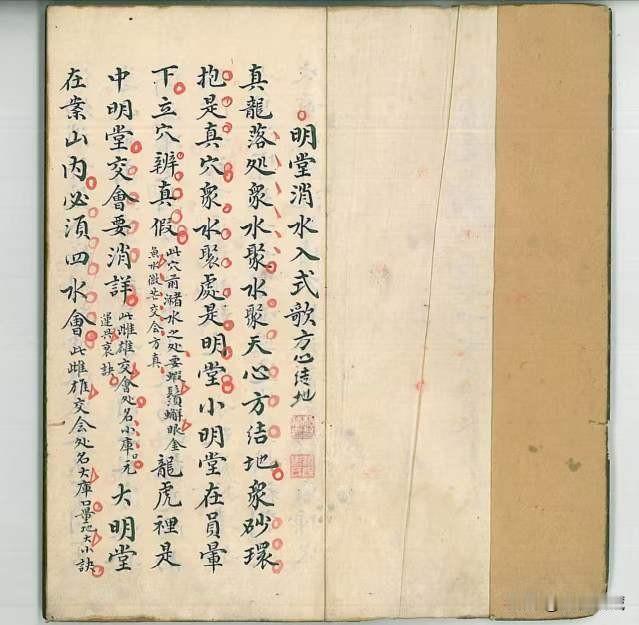 明堂消水入式歌方心结地
真龍落処衆水聚水聚天心方结地衆砂環
抱是真穴衆水聚處是明堂小明堂在員暈
下立穴辨真假
此穴前瀦水之处要蝦鬚蠏眼金
魚水微茫交会方真
龍虎裡是
中明堂交會要消詳
此雌雄交會处名小庫口元
運興衰訣
大明堂
在案山内必須四水會此雌雄交会处名大庫口量地大小訣